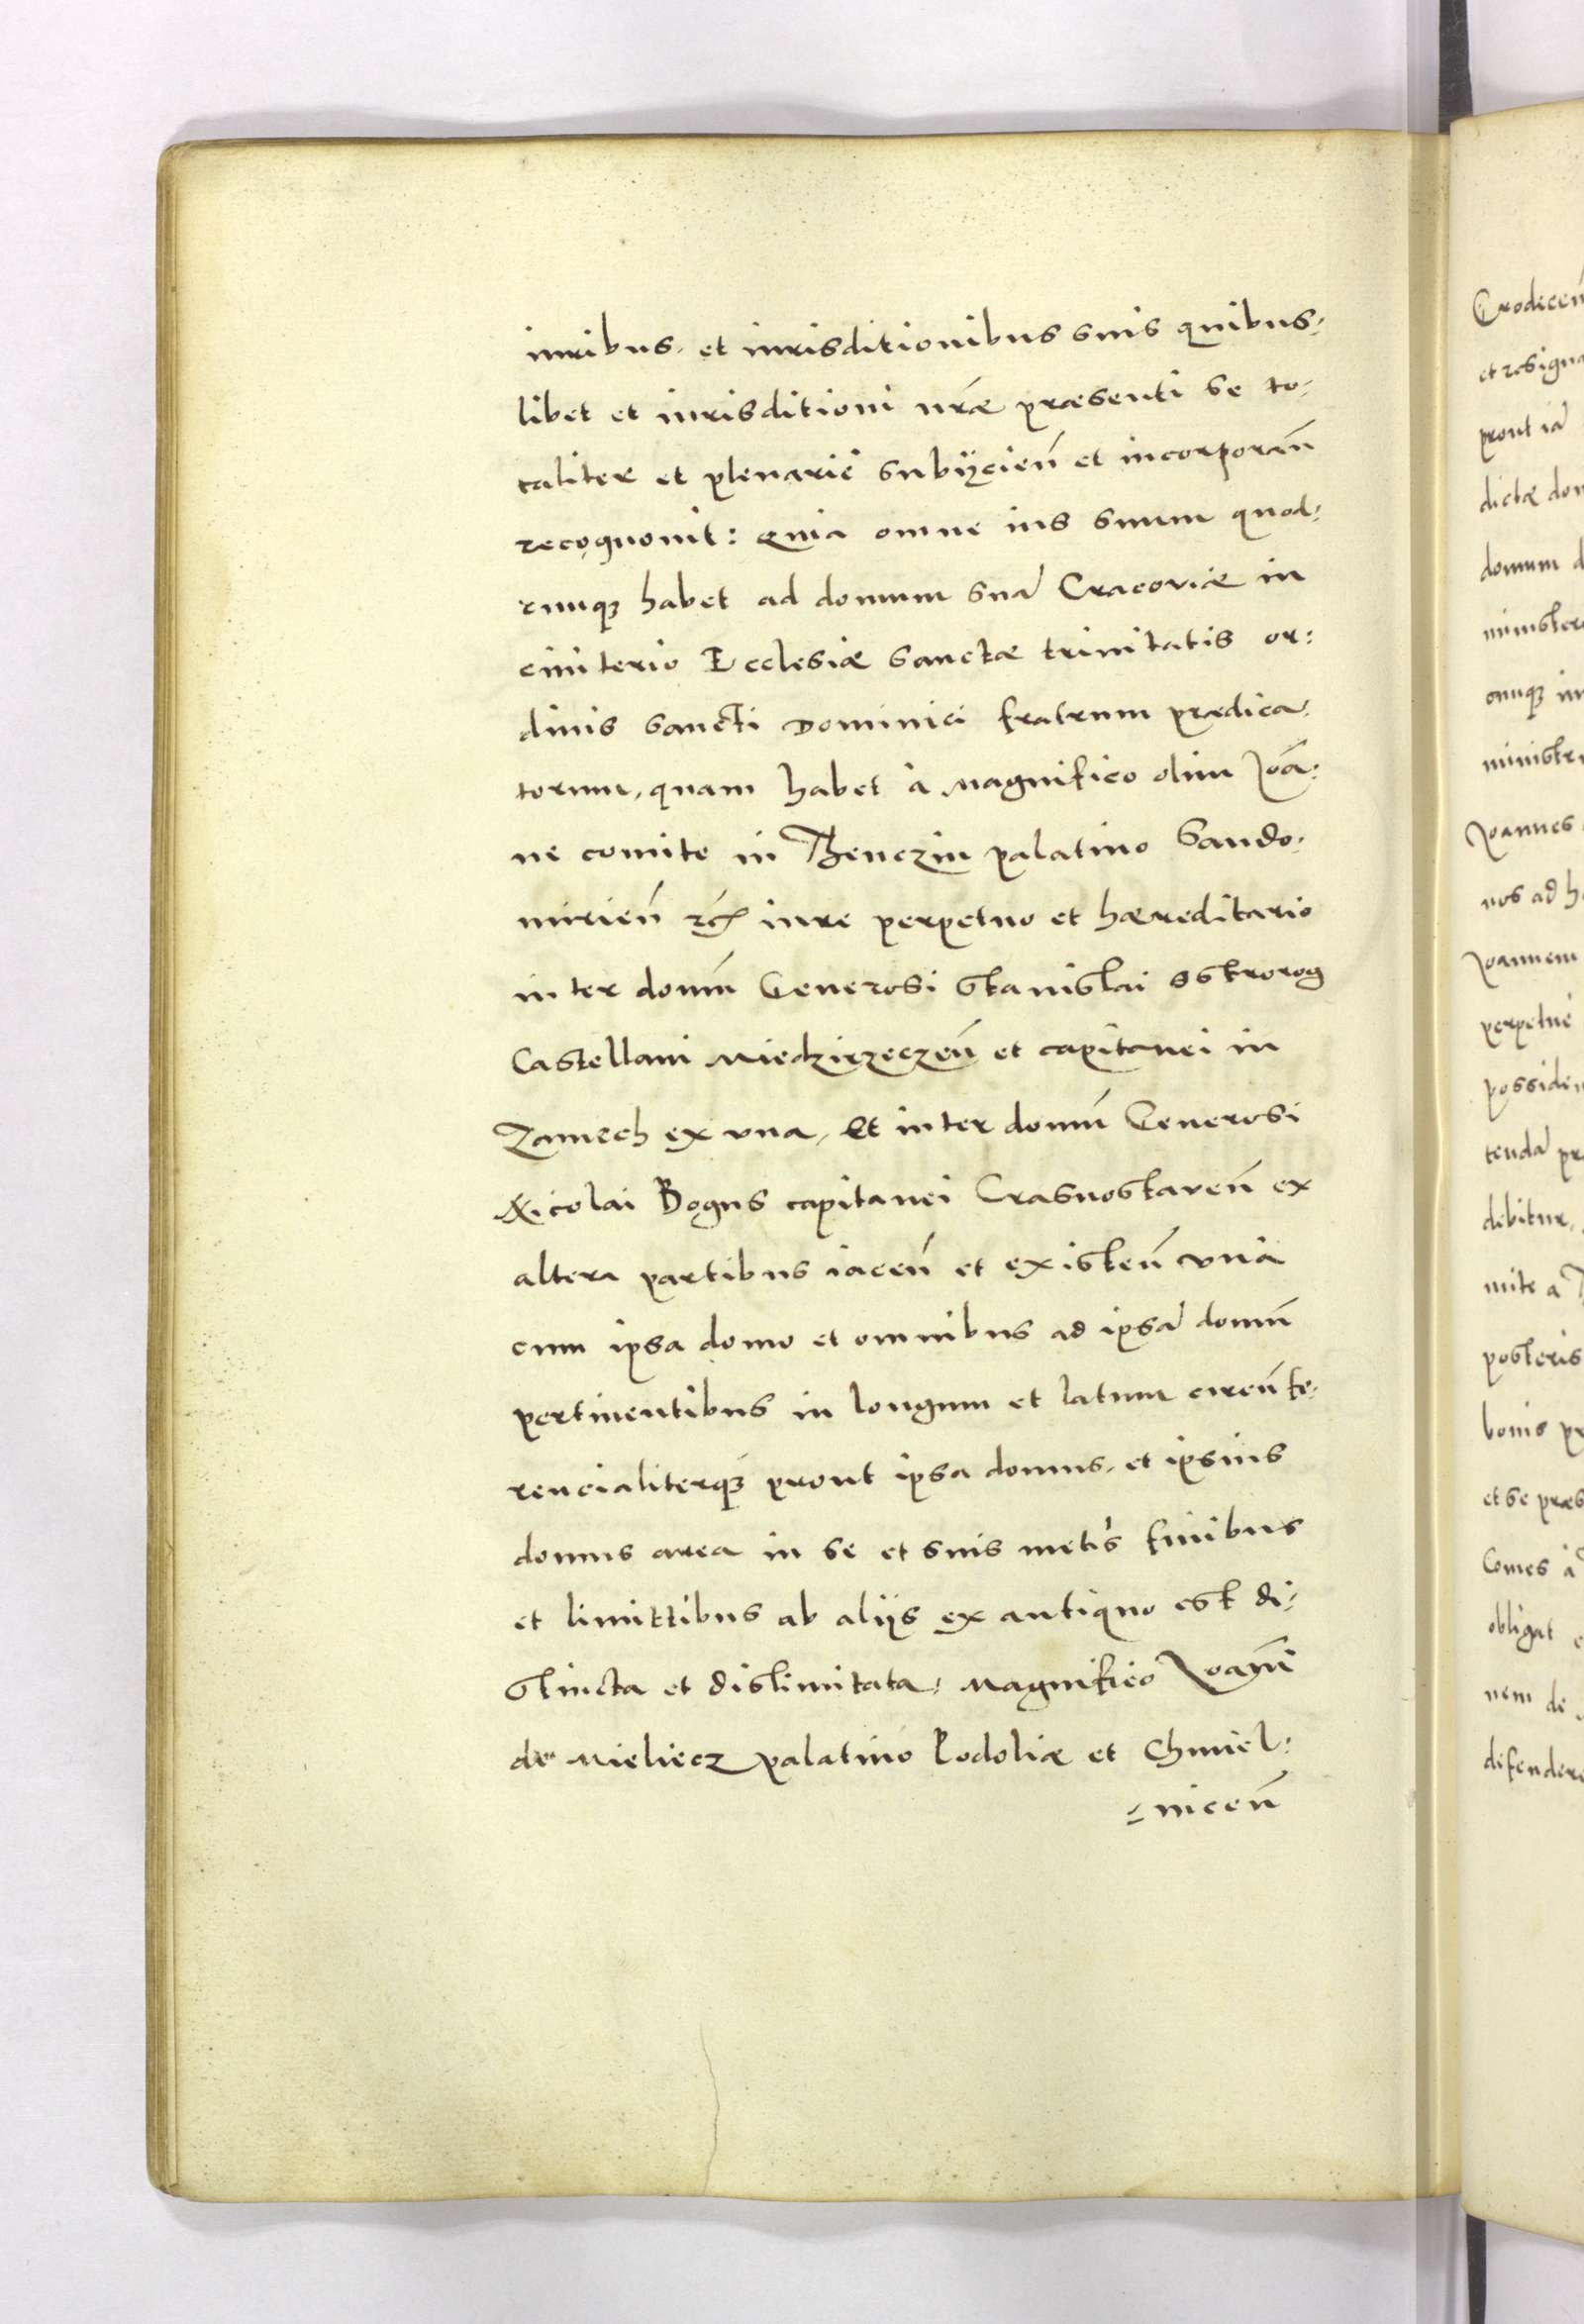 iuribus, et iurisditionibus suis quibus-
libet et iurisditioni nr̃æ præsenti se to-
taliter et plenariè subÿcieñ et incorporañ
recognouit: Quia omne ius suum quod-
cunqꝫ habet ad domum suã Cracoviæ in
cimiterio Ecclesiæ sanctæ trinitatis or-
dinis sancti Dominici fratrum prædica-
torum, quam habet à Magnifico olim Joã-
ne comite in Thenczin palatino Sando-
mirieñ etc̃ iure perpetuo et hæreditario
inter domũ Generosi Stanislai Ostrorog
Castellani Miedzirzeczeñ et capitanei in
Zamech ex vna, Et inter domũ Generosi
Nicolai Bogus capitanei Crasnostaveñ ex
altera partibus iaceñ et existeñ vnà
cum ipsa domo et omnibus ad ipsã domũ
pertinentibus in longum et latum circũfe-
rencialiterqꝫ prout ipsa domus, et ipsius
domus area in se et suis metis finibus
et limittibus ab alijs ex antiquo est di-
stincta et dislimitata, Magnifico Joañi
de Mieliecz palatino Podoliæ et Chmiel-
-niceñ
Grodiceñ
et resigna
prout iã
dictæ dom
domum d
ministre
cunqꝫ in
ministr
Joannes
nos ad h
Joannem
perpetuè
possiden
tendã pr
debitur,
mite a T
posteris
bonis pr
et se præs
Comes à
obligat e
nem de
defendere